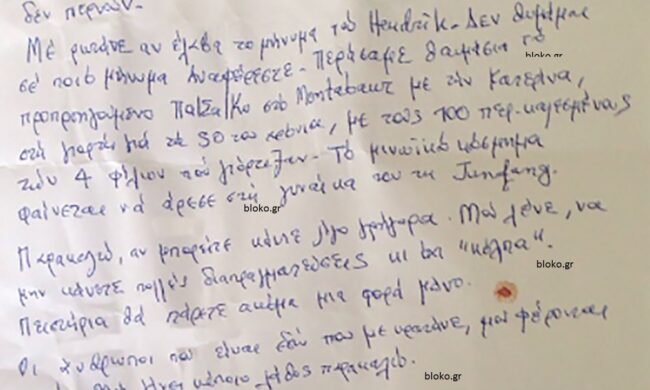 δεν περνούν.
Με ρωτάνε αν έλαβα το μήνυμα του Hendrik. Δεν θυμάμαι
bloko.gr
σε ποιο μήνυμα αναφέρεστε. Περάσαμε θαυμάσια το
bloko.gr
προπροηγούμενο Πάσχα στο Montabaur με την Κατερίνα,
στη γιορτή για τα 50 του χρόνια, με τους 100 περ. καλεσμένους
των 4 φίλων που γιόρταζαν. Το μινωικό κόσμημα
φαίνεται να άρεσε στη γυναίκα του τη Junfang.
bloko.gr
Παρακαλώ, αν μπορείτε κάντε λίγο γρήγορα. Μου λένε, να
μην κάνετε πολλές διαπραγματεύσεις κι όχι "κόλπα".
bloko.gr
Πειστήρια θα πάρετε ακόμα μια φορά μόνο.
Οι άνθρωποι που είναι εδώ που με κρατάνε, μου φέρονται
παρακαλώ.
bloko.gr